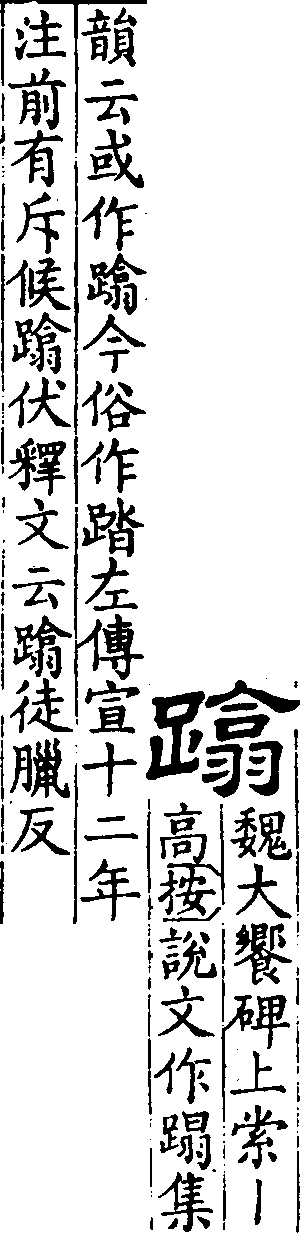 蹹
魏大饗碑上索丨
高按說文作蹋集
韻云或作蹹今俗作踏左傳宣十二年
注前有斥候蹹伏釋文云蹹徒臘反